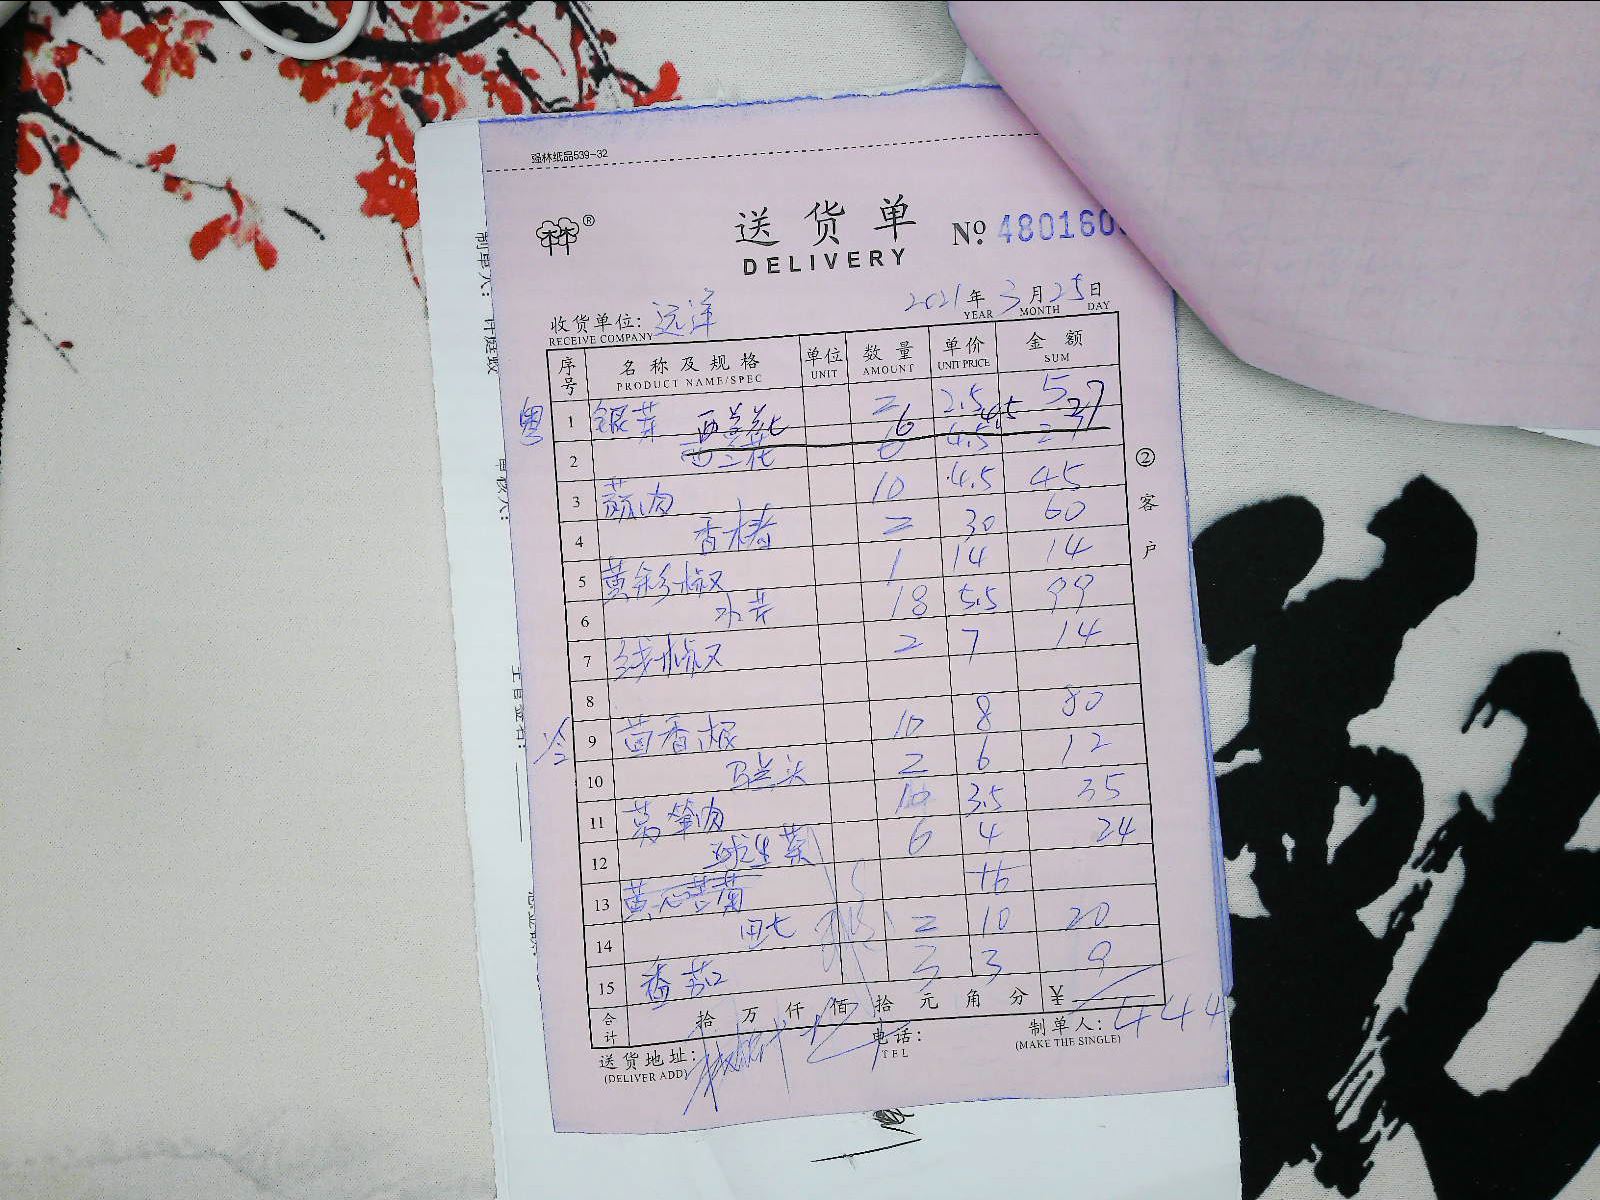 强林纸品539-32
林®
送货单
DELIVERY
No. 480160
2021年3月25日
YEAR MONTH DAY
收货单位: 远洋
RECEIVE COMPANY
序号 名称及规格 单位 数量 单价 金额
PRODUCT NAME/SPEC UNIT AMOUNT UNIT PRICE SUM
粤 1 银芽 2 2.5 5
西兰花 6 4.5 27
2 西兰花 6 4.5 27
3 10 4.5 45
4 2 30 60
5 黄彩椒 1 14 14
6 水芹 18 5.5 99
7 线椒 2 7 14
8
冷 9 茴香根 10 8 80
10 马兰头 2 6 12
11 莴笋肉 10 3.5 35
12 球生菜 6 4 24
13 黄心苦菊 16
14 田七 2 10 20
15 番茄 3 3 9
合计 拾 万 仟 佰 拾 元 角 分 ¥ 444
送货地址:
(DELIVER ADD)
电话:
TEL
制单人:
(MAKE THE SINGLE)
② 客户